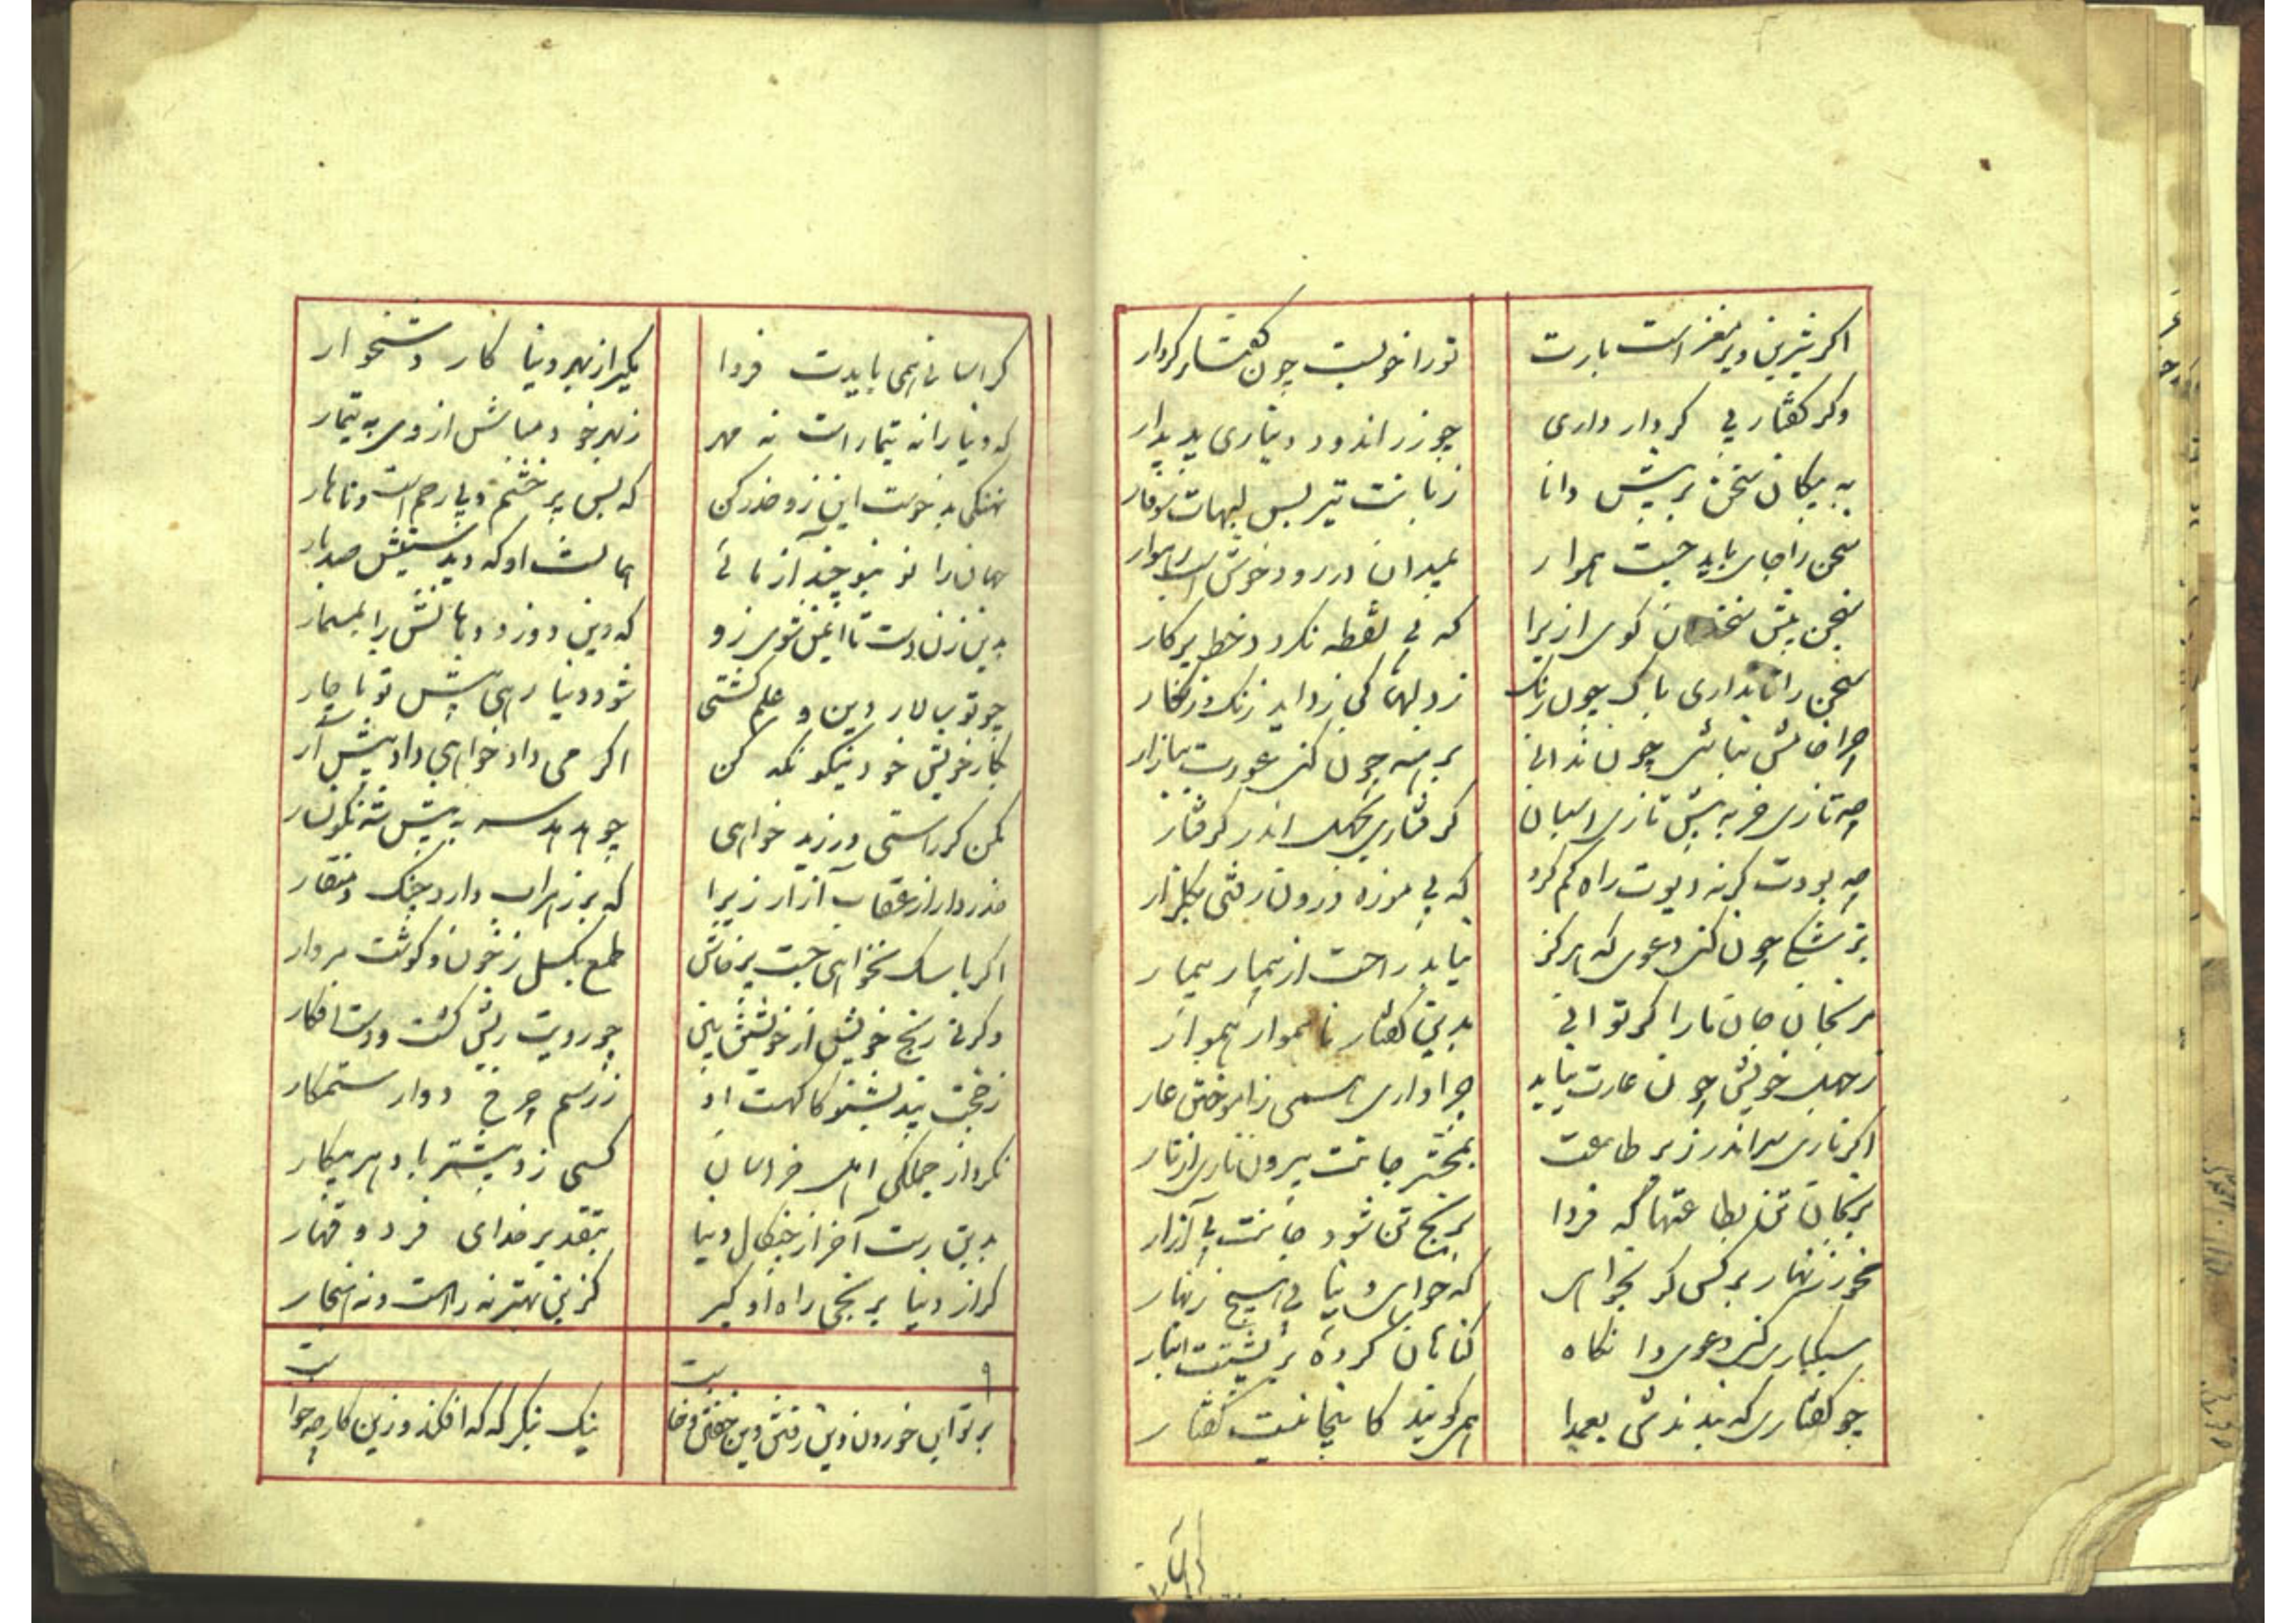 اکر شیرین و پر مغز است بارت
تو را خوبست چون گفتار کردار
وکر کفتار بی کردار داری
چو زر اندود دیناری پدیدار
به پیکان سخن بر پیش دانا
زبانت تیر بس لبهات سوفار
سخن را جای باید جست هموار
بمیدان در رود خوش اسب رهوار
سخن پیش سخندان کوی ازیرا
که بی نقطه نکردد خط پرکار
سخن را تا نداری پاک چون زنک
ز دلها کی زداید زنک و زنکار
چرا خامش نباشی چون ندانی
برهنه چون کنی عورت ببازار
چه تازی خر به پیش تازی اسبان
کرفتاری بجهل اندر کرفتار
چه بودت کرنه دیوت راه کم کرد
که بی موزه درون رفتی بکلزار
پزشکی چون کنی دعوی که هرکز
نیابد راحت از بیمار بیمار
مرنجان جان ما را کر توانی
بدین کفتار ناهموار هموار
ز جهل خویش چون عارت نیاید
چرا داری همی ز آموختن عار
اکر ناری سر اندر زیر طاعت
بمحشر جانت بیرون ناری از نار
برنجان تن بطاعتها که فردا
برنج تن شود جانت بی آزار
مخور زنهار بر کس کر نخواهی
که خواهی و نیابی هیچ زنهار
سبکباری کنی دعوی وا نکاه
کناهان کرده بر پشتت انبار
چو کفتاری که بندندش بعمدا
همی کویند کاینجا نیست کفتار
کر آسا
کر آسانی همی بایدت فردا
مکیر از بهر دنیا کار دشخوار
که دنیا را نه تیمار است نه مهر
ز بهرخود مباش از وی به تیمار
نهنکی بدخوست این زو حذر کن
که بس پر خشم و بی رحم است و ناهار
جهان را نو بنو چند آزمائی
همانست او که دیدستیش صد بار
بدین زن دست تا ایمن شوی زو
که دین دوزد دهانش را بمسمار
چو تو سالار دین و علم کشتی
شود دنیا رهی پیش تو ناچار
بکار خویش خود نیکو نکه کن
اکر می داد خواهی داد پیش آر
مکن کر راستی ورزید خواهی
چو هدهد سر به پیش شه نکونسار
حذر دار از عقاب آز ازیرا
که پر زهر آب دارد چنک و منقار
اکر با سک نخواهی جست پرخاش
طمع بکسل ز خون و کوشت مردار
وکرنه رنج خویش از خویشتن بین
چو رویت ریش کشت و دست افکار
ز حجت پند بشنو کا کهست او
ز رسم چرخ دوار ستمکار
نکرد از جملکی اهل خراسان
کسی زو بیشتر با دهر پیکار
بدین رست آخر از چنکال دنیا
بتقدیر خدای فرد و قهار
کر از دنیا برنجی راه او کیر
کزین بهتر نه راهست و نه هنجار
۹
بر تو این خوردن و این رفتن و این خفتن و خا
نیک بنکر که که افکند و زین کار چه خوا